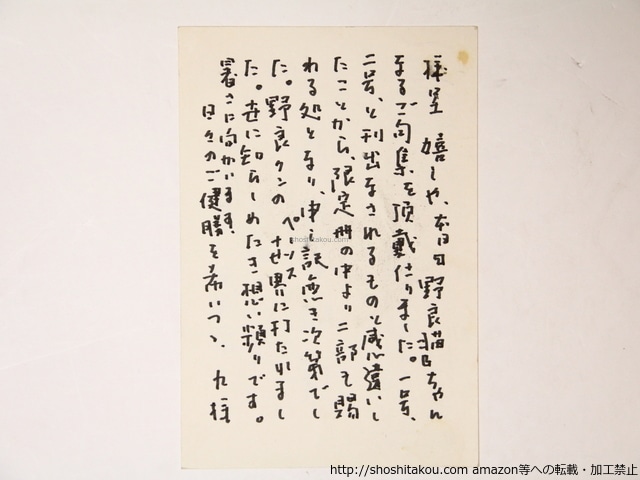 拝呈 嬉しや、本日野良猫ちゃん
なるご句集を頂戴仕りました。一号、
二号、と刊出なされるものと感違いし
たことから、限定册の中より二部も賜
われる処となり、申し訳無き次第でし
た。野良クンのペーソス世界に打たれまし
た。世に知らしめたき想い頻りです。
暑さに向かいます、
日々のご健勝を希いつつ、 九拝
shoshitakou.com
http://shoshitakou.com amazon等への転載・加工禁止